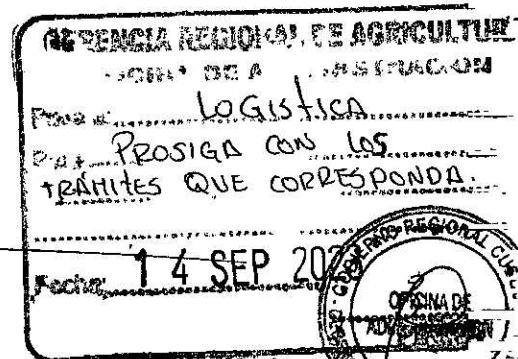 GERENCIA REGIONAL DE AGRICULTUR
OFICINA DE ADMINISTRACION
Pase a: LOGISTICA
Para: PROSIGA CON LOS
TRÁMITES QUE CORRESPONDA.
Fecha: 14 SEP 202
GOBIERNO REGIONAL CUS
OFICINA DE
ADMINISTRACION